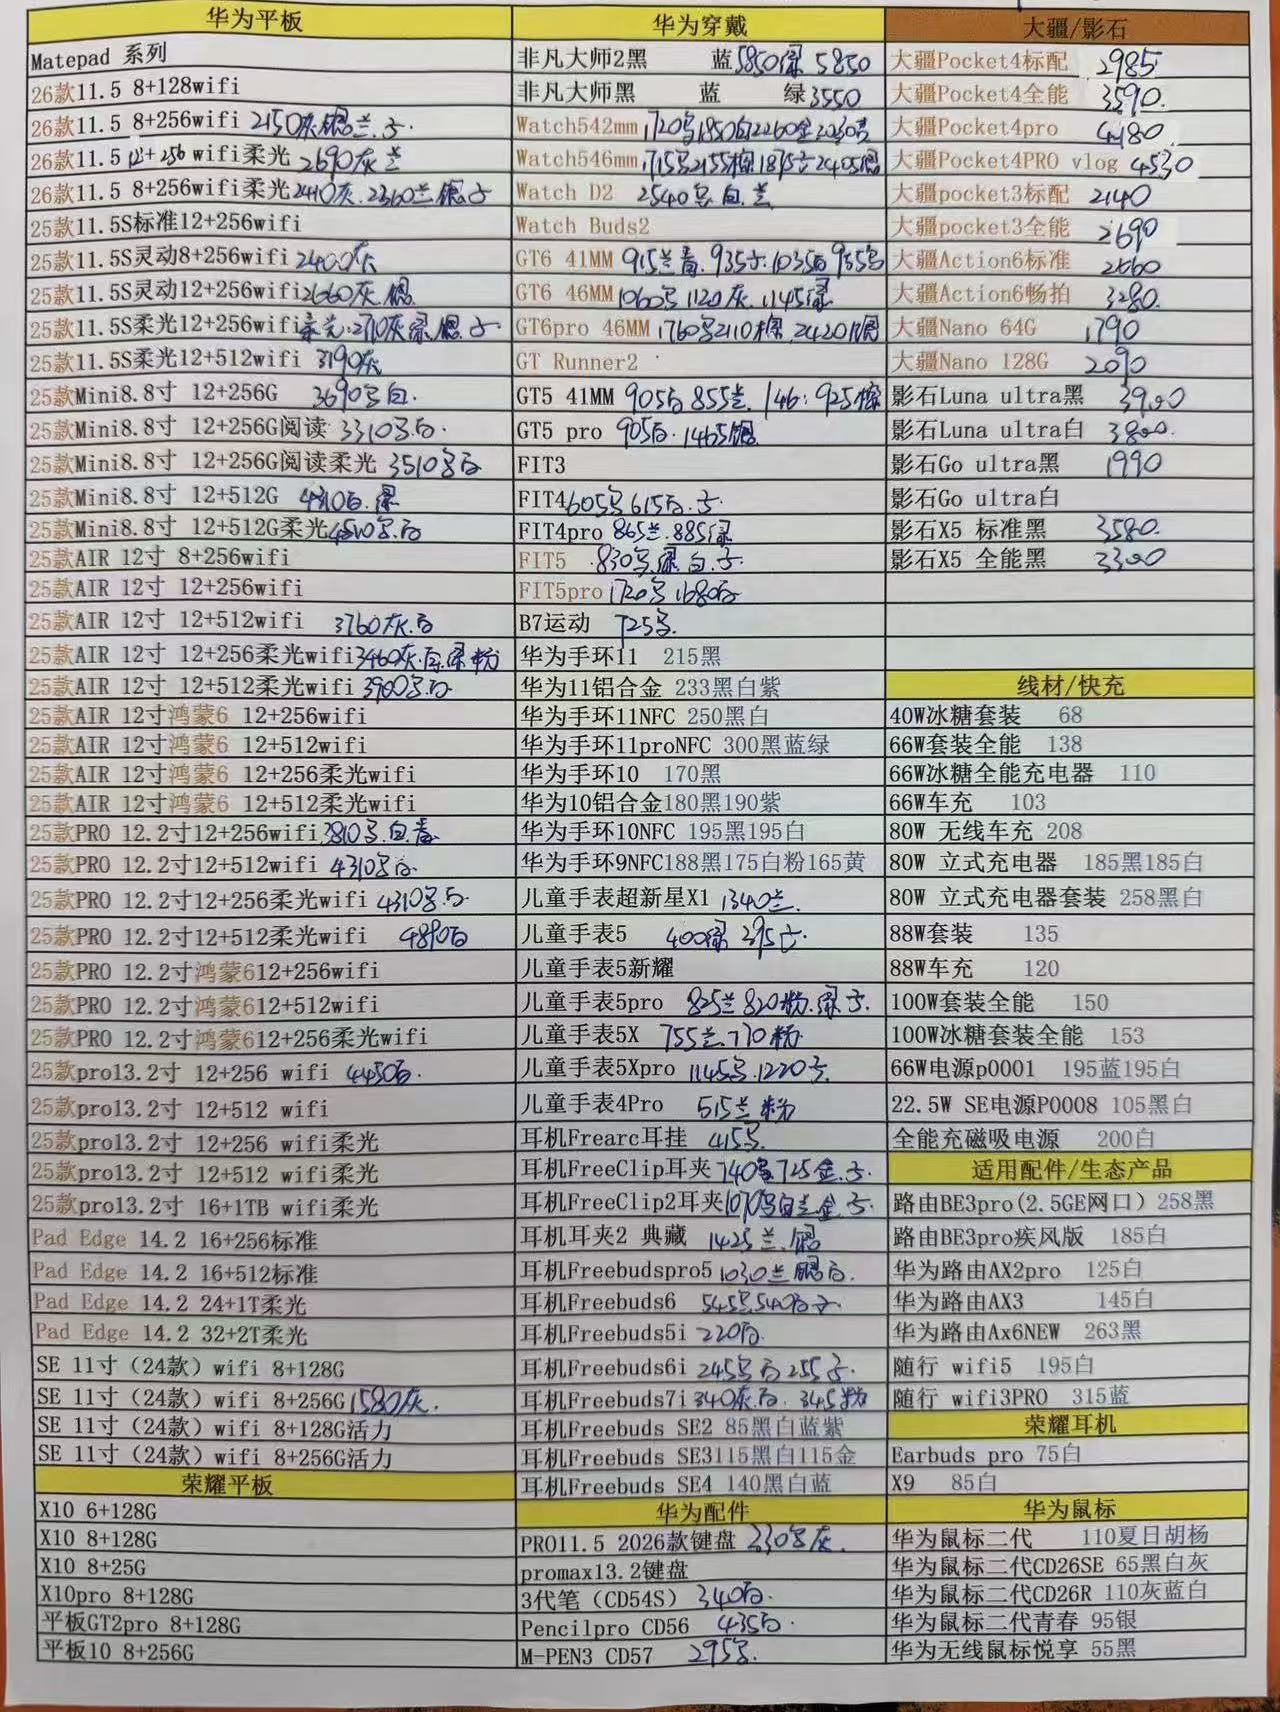 华为平板
Matepad 系列
26款11.5 8+128wifi
26款11.5 8+256wifi 2150灰银兰.子
26款11.5 12+256 wifi柔光 2690灰兰
26款11.5 8+256wifi柔光2410灰.2360兰银子
25款11.5S标准12+256wifi
25款11.5S灵动8+256wifi2400灰
25款11.5S灵动12+256wifi2660灰.银
25款11.5S柔光12+256wifi柔光.2710灰绿.银.子
25款11.5S柔光12+512wifi 3190灰
25款Mini8.8寸 12+256G 3690号白.
25款Mini8.8寸 12+256G阅读 3310号白.
25款Mini8.8寸 12+256G阅读柔光 3510号白
25款Mini8.8寸 12+512G 4310白.绿
25款Mini8.8寸 12+512G柔光4510号.白
25款AIR 12寸 8+256wifi
25款AIR 12寸 12+256wifi
25款AIR 12寸 12+512wifi 3760灰.白
25款AIR 12寸 12+256柔光wifi3460灰.白.绿粉
25款AIR 12寸 12+512柔光wifi 3900号白
25款AIR 12寸鸿蒙6 12+256wifi
25款AIR 12寸鸿蒙6 12+512wifi
25款AIR 12寸鸿蒙6 12+256柔光wifi
25款AIR 12寸鸿蒙6 12+512柔光wifi
25款PRO 12.2寸12+256wifi 3810号.白.青
25款PRO 12.2寸12+512wifi 4310号白
25款PRO 12.2寸12+256柔光wifi 4310号白.
25款PRO 12.2寸12+512柔光wifi 4890白
25款PRO 12.2寸鸿蒙612+256wifi
25款PRO 12.2寸鸿蒙612+512wifi
25款PRO 12.2寸鸿蒙612+256柔光wifi
25款pro13.2寸 12+256 wifi 4450白.
25款pro13.2寸 12+512 wifi
25款pro13.2寸 12+256 wifi柔光
25款pro13.2寸 12+512 wifi柔光
25款pro13.2寸 16+1TB wifi柔光
Pad Edge 14.2 16+256标准
Pad Edge 14.2 16+512标准
Pad Edge 14.2 24+1T柔光
Pad Edge 14.2 32+2T柔光
SE 11寸（24款）wifi 8+128G
SE 11寸（24款）wifi 8+256G1580灰.
SE 11寸（24款）wifi 8+128G活力
SE 11寸（24款）wifi 8+256G活力
荣耀平板
X10 6+128G
X10 8+128G
X10 8+25G
X10pro 8+128G
平板GT2pro 8+128G
平板10 8+256G
华为穿戴
非凡大师2黑 蓝5850绿 5850
非凡大师黑 蓝 绿3550
Watch542mm1720号1850白2260金2030青
Watch546mm1715号2155棕1875子2405银
Watch D2 2540号.白.兰
Watch Buds2
GT6 41MM 915兰青.935子.1035白955号
GT6 46MM1060号1120灰.1145绿
GT6pro 46MM1760号2110棕.2420银
GT Runner2
GT5 41MM 905白855兰./46:925棕
GT5 pro 905白.1465银
FIT3
FIT4605号615白.子.
FIT4pro 865兰.885绿
FIT5 830号.绿.白.子.
FIT5pro1720号1680白
B7运动 725号.
华为手环11 215黑
华为11铝合金 233黑白紫
华为手环11NFC 250黑白
华为手环11proNFC 300黑蓝绿
华为手环10 170黑
华为10铝合金180黑190紫
华为手环10NFC 195黑195白
华为手环9NFC188黑175白粉165黄
儿童手表超新星X1 1340兰.
儿童手表5 400绿 395子.
儿童手表5新耀
儿童手表5pro 825兰820粉.绿子.
儿童手表5X 755兰.770粉
儿童手表5Xpro 1145号.1220子.
儿童手表4Pro 515兰粉
耳机Frearc耳挂 415号.
耳机FreeClip耳夹740号725金.子.
耳机FreeClip2耳夹1070号白兰金.子.
耳机耳夹2 典藏 1425兰.银
耳机Freebudspro51030兰银白.
耳机Freebuds6 545号540白子.
耳机Freebuds5i 220白.
耳机Freebuds6i 245号白255子.
耳机Freebuds7i340灰白.345粉
耳机Freebuds SE2 85黑白蓝紫
耳机Freebuds SE3115黑白115金
耳机Freebuds SE4 140黑白蓝
华为配件
PRO11.5 2026款键盘 330号灰.
promax13.2键盘
3代笔（CD54S）340白.
Pencilpro CD56 435白.
M-PEN3 CD57 295号.
大疆/影石
大疆Pocket4标配 2985
大疆Pocket4全能 3590.
大疆Pocket4pro 4180
大疆Pocket4PRO vlog 4530
大疆pocket3标配 2140
大疆pocket3全能 2690
大疆Action6标准 2560
大疆Action6畅拍 3280.
大疆Nano 64G 1790
大疆Nano 128G 2090
影石Luna ultra黑 3900
影石Luna ultra白 3800.
影石Go ultra黑 1990
影石Go ultra白
影石X5 标准黑 3580.
影石X5 全能黑 3300
线材/快充
40W冰糖套装 68
66W套装全能 138
66W冰糖全能充电器 110
66W车充 103
80W 无线车充 208
80W 立式充电器 185黑185白
80W 立式充电器套装 258黑白
88W套装 135
88W车充 120
100W套装全能 150
100W冰糖套装全能 153
66W电源p0001 195蓝195白
22.5W SE电源P0008 105黑白
全能充磁吸电源 200白
适用配件/生态产品
路由BE3pro(2.5GE网口）258黑
路由BE3pro疾风版 185白
华为路由AX2pro 125白
华为路由AX3 145白
华为路由Ax6NEW 263黑
随行 wifi5 195白
随行 wifi3PRO 315蓝
荣耀耳机
Earbuds pro 75白
X9 85白
华为鼠标
华为鼠标二代 110夏日胡杨
华为鼠标二代CD26SE 65黑白灰
华为鼠标二代CD26R 110灰蓝白
华为鼠标二代青春 95银
华为无线鼠标悦享 55黑